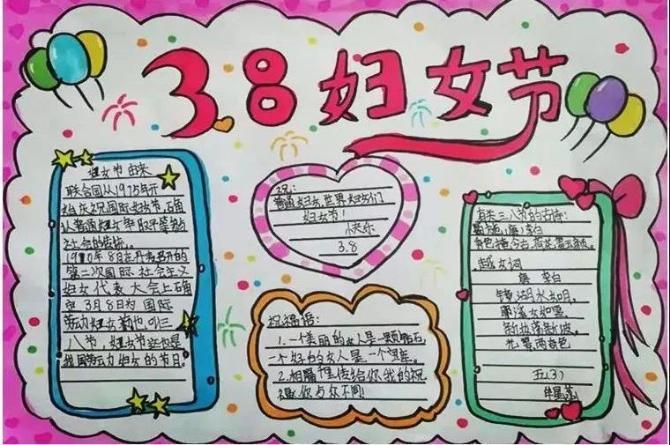 3.8妇女节
妇女节由来
联合国从1975年开
始庆祝国际妇女节,确
认普通妇女争取平等参与
社会的传统。
1910年8月在丹麦召开的
第二次国际社会主义
妇女代表大会上确
定3月8日为国际
劳动妇女
八节,妇女节
我国劳动妇女的节日。
祝:
普通妇女世界妇女们
妇女节!
快乐
3.8
祝福语:
1.一个美丽的女人是一颗钻石
一个好的女人是一个宝库。
2.相隔
你与众不同!
有关三八节的古诗:
唐 李白
越女词
唐 李白
镜湖水如月,
耶溪女如雪。
新妆荡新波,
光景两奇绝。
五(3)